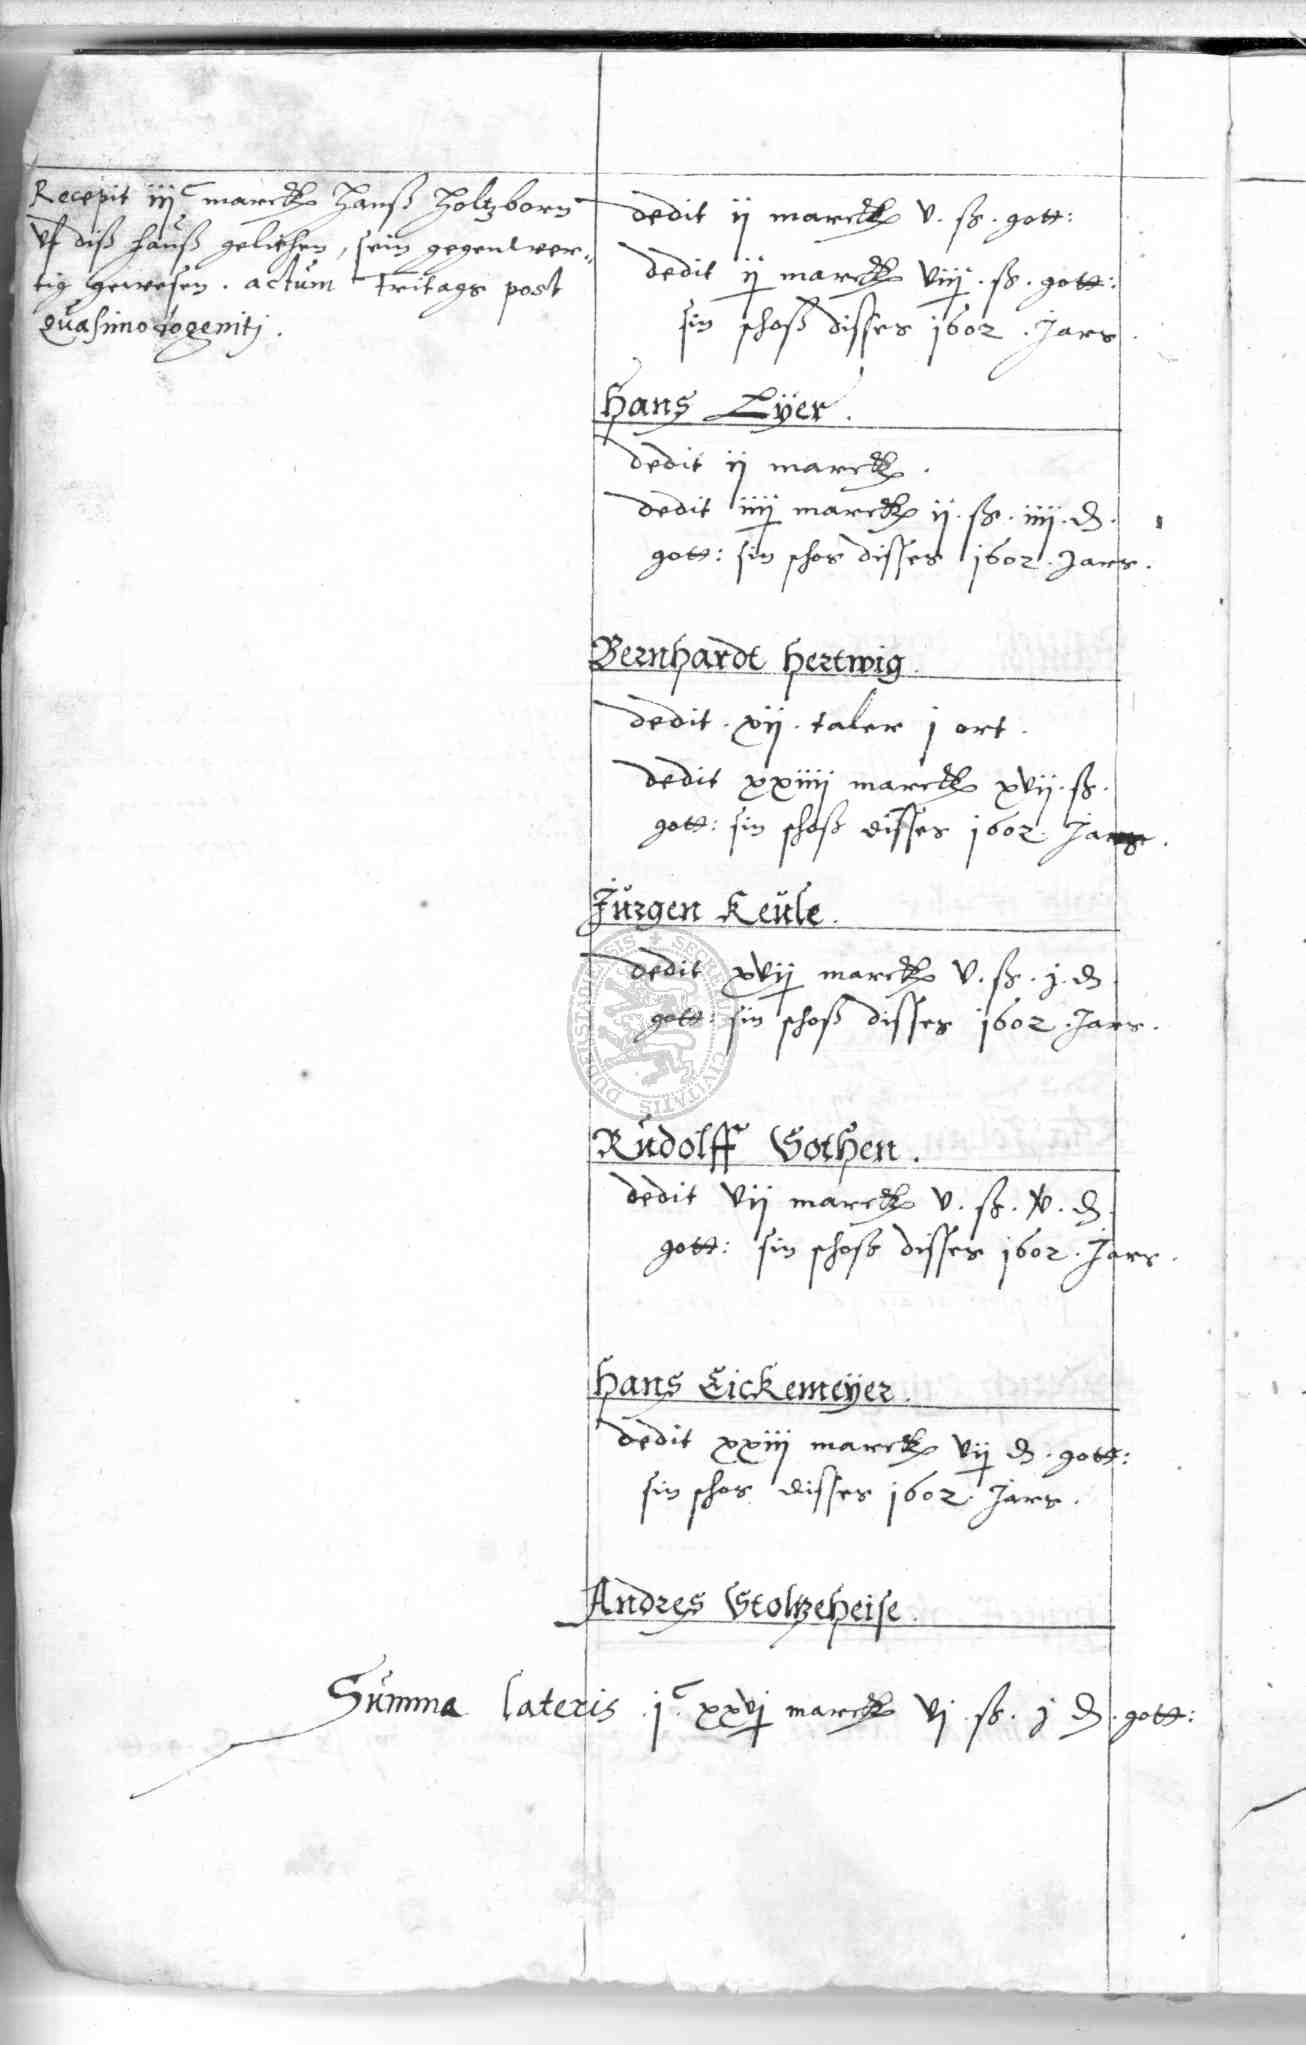 Recepit iijc marck Hanß Holtzborn
uf diß hauß geliehen, sein gegenwer-
tig gewesen. actum Fritags post
Quasimodogenitj.
dedit ij marck v. ß. gott:
dedit ij marck viij. ß. gott:
sin schoß disses 1602. Jars.
Hans Lÿer.
dedit ij marck.
dedit iiij marck ij. ß. iiij. d.
gott: sin schos disses 1602. Jars.
Bernhardt Hertwig.
dedit. xij. taler j ort.
dedit xxiiij marck xvij. ß.
gott: sin schoß disses 1602. Jars.
Jürgen Keüle.
dedit xvij marck v. ß. j. d
gott: sin schoß disses 1602. Jars.
Rudolff Gothen.
dedit vij marck v. ß. v. d.
gott: sin schoß disses 1602. Jars.
Hans Eickemeÿer.
dedit xxiij marck vij d. gott:
sin schos disses 1602. Jars.
Andres Stoltzeheise.
Summa lateris jc xxvj marck vj. ß. j d. gott:
SECRETUM CIVITATIS DUDERSTADIENSIS